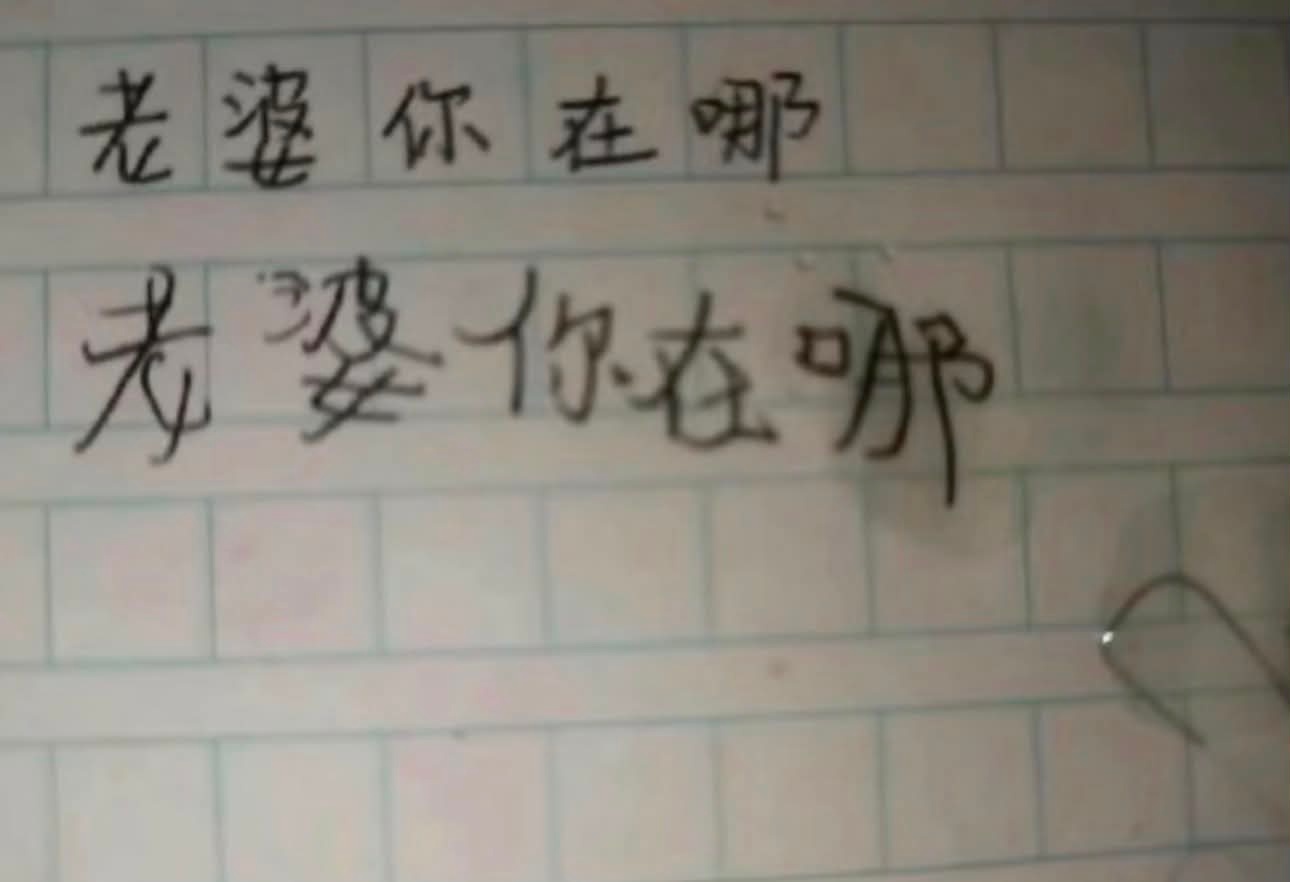 老婆你在哪
老婆你在哪